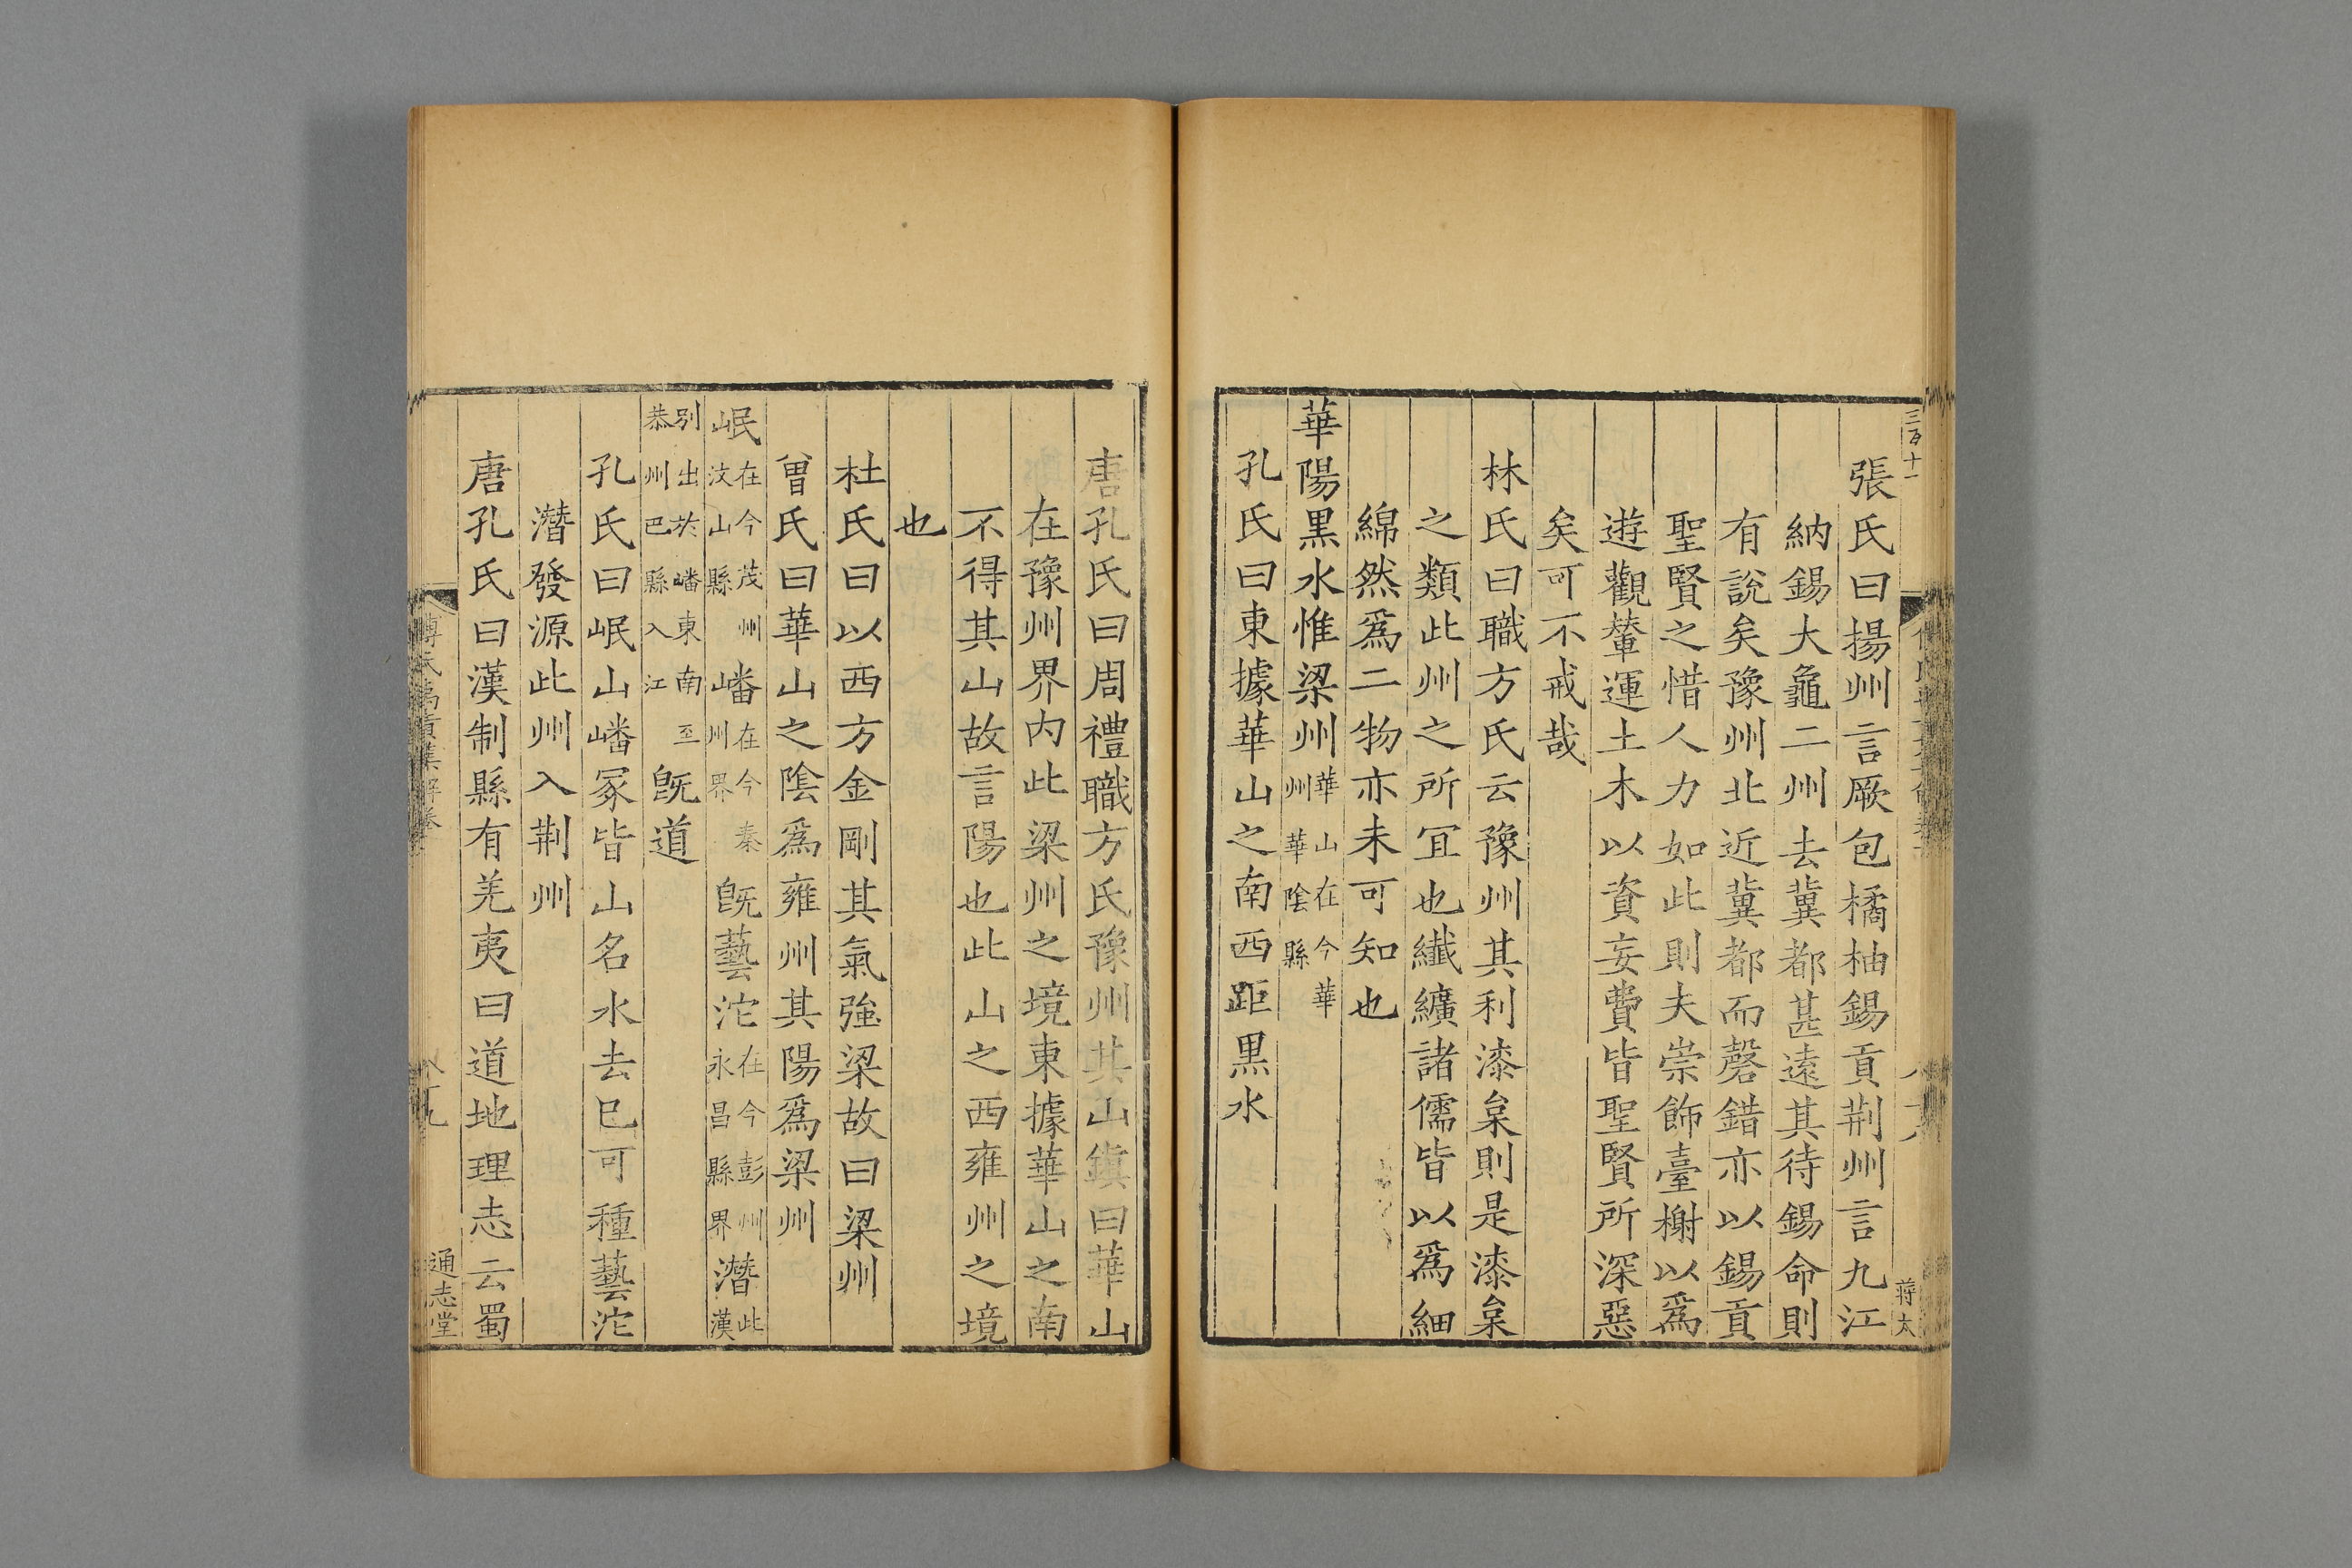 三百十一
蔣太
張氏曰揚州言厥包橘柚錫貢荆州言九江
納錫大龜二州去冀都甚遠其待錫命則
有說矣豫州北近冀都而磬錯亦以錫貢
聖賢之惜人力如此則夫崇飾臺榭以爲
遊觀輦運土木以資妄費皆聖賢所深惡
矣可不戒哉
林氏曰職方氏云豫州其利漆枲則是漆枲
之類此州之所冝也纎纊諸儒皆以爲細
綿然爲二物亦未可知也
華陽黒水惟梁州華山在今華州華陰縣
孔氏曰東據華山之南西距黒水
唐孔氏曰周禮職方氏豫州其山鎭曰華山
在豫州界内此梁州之境東據華山之南
不得其山故言陽也此山之西雍州之境
也
杜氏曰以西方金剛其氣強梁故曰梁州
曾氏曰華山之陰爲雍州其陽爲梁州
岷在今茂州汶山縣嶓在今秦州界旣藝沱在今彭州永昌縣界潛此漢
別出於嶓東南至恭州巴縣入江旣道
孔氏曰岷山嶓冢皆山名水去巳可種藝沱
潛發源此州入荆州
唐孔氏曰漢制縣有羌夷曰道地理志云蜀
傅氏禹貢集解卷
通志堂